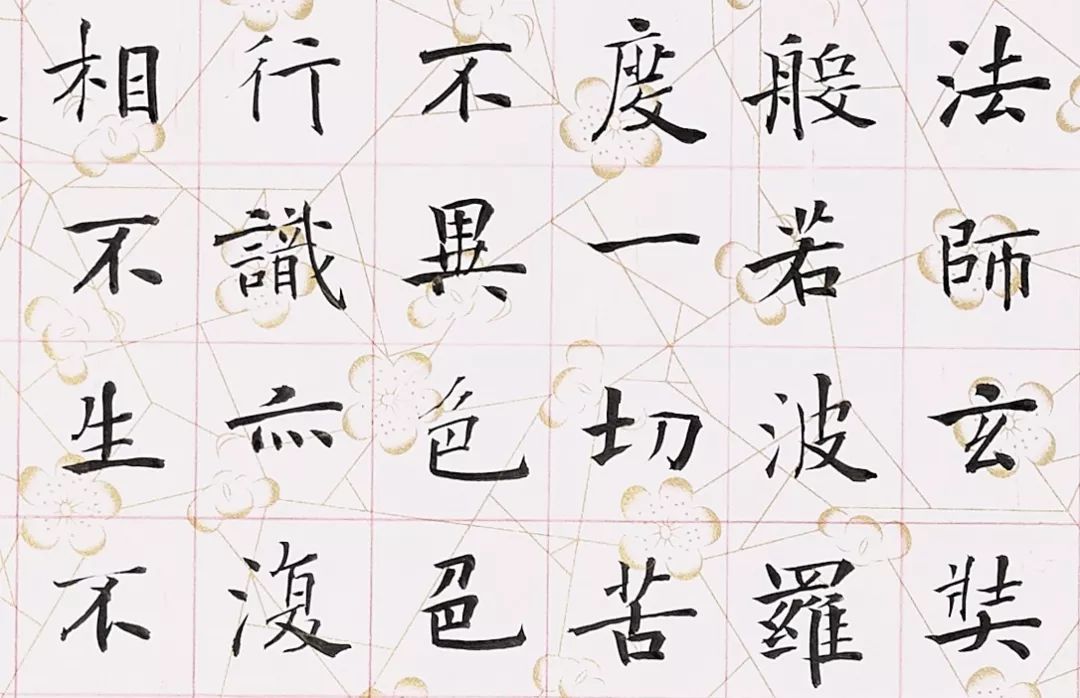 法師玄奘
般若波羅
度一切苦
不異色色
行識亦復
相不生不